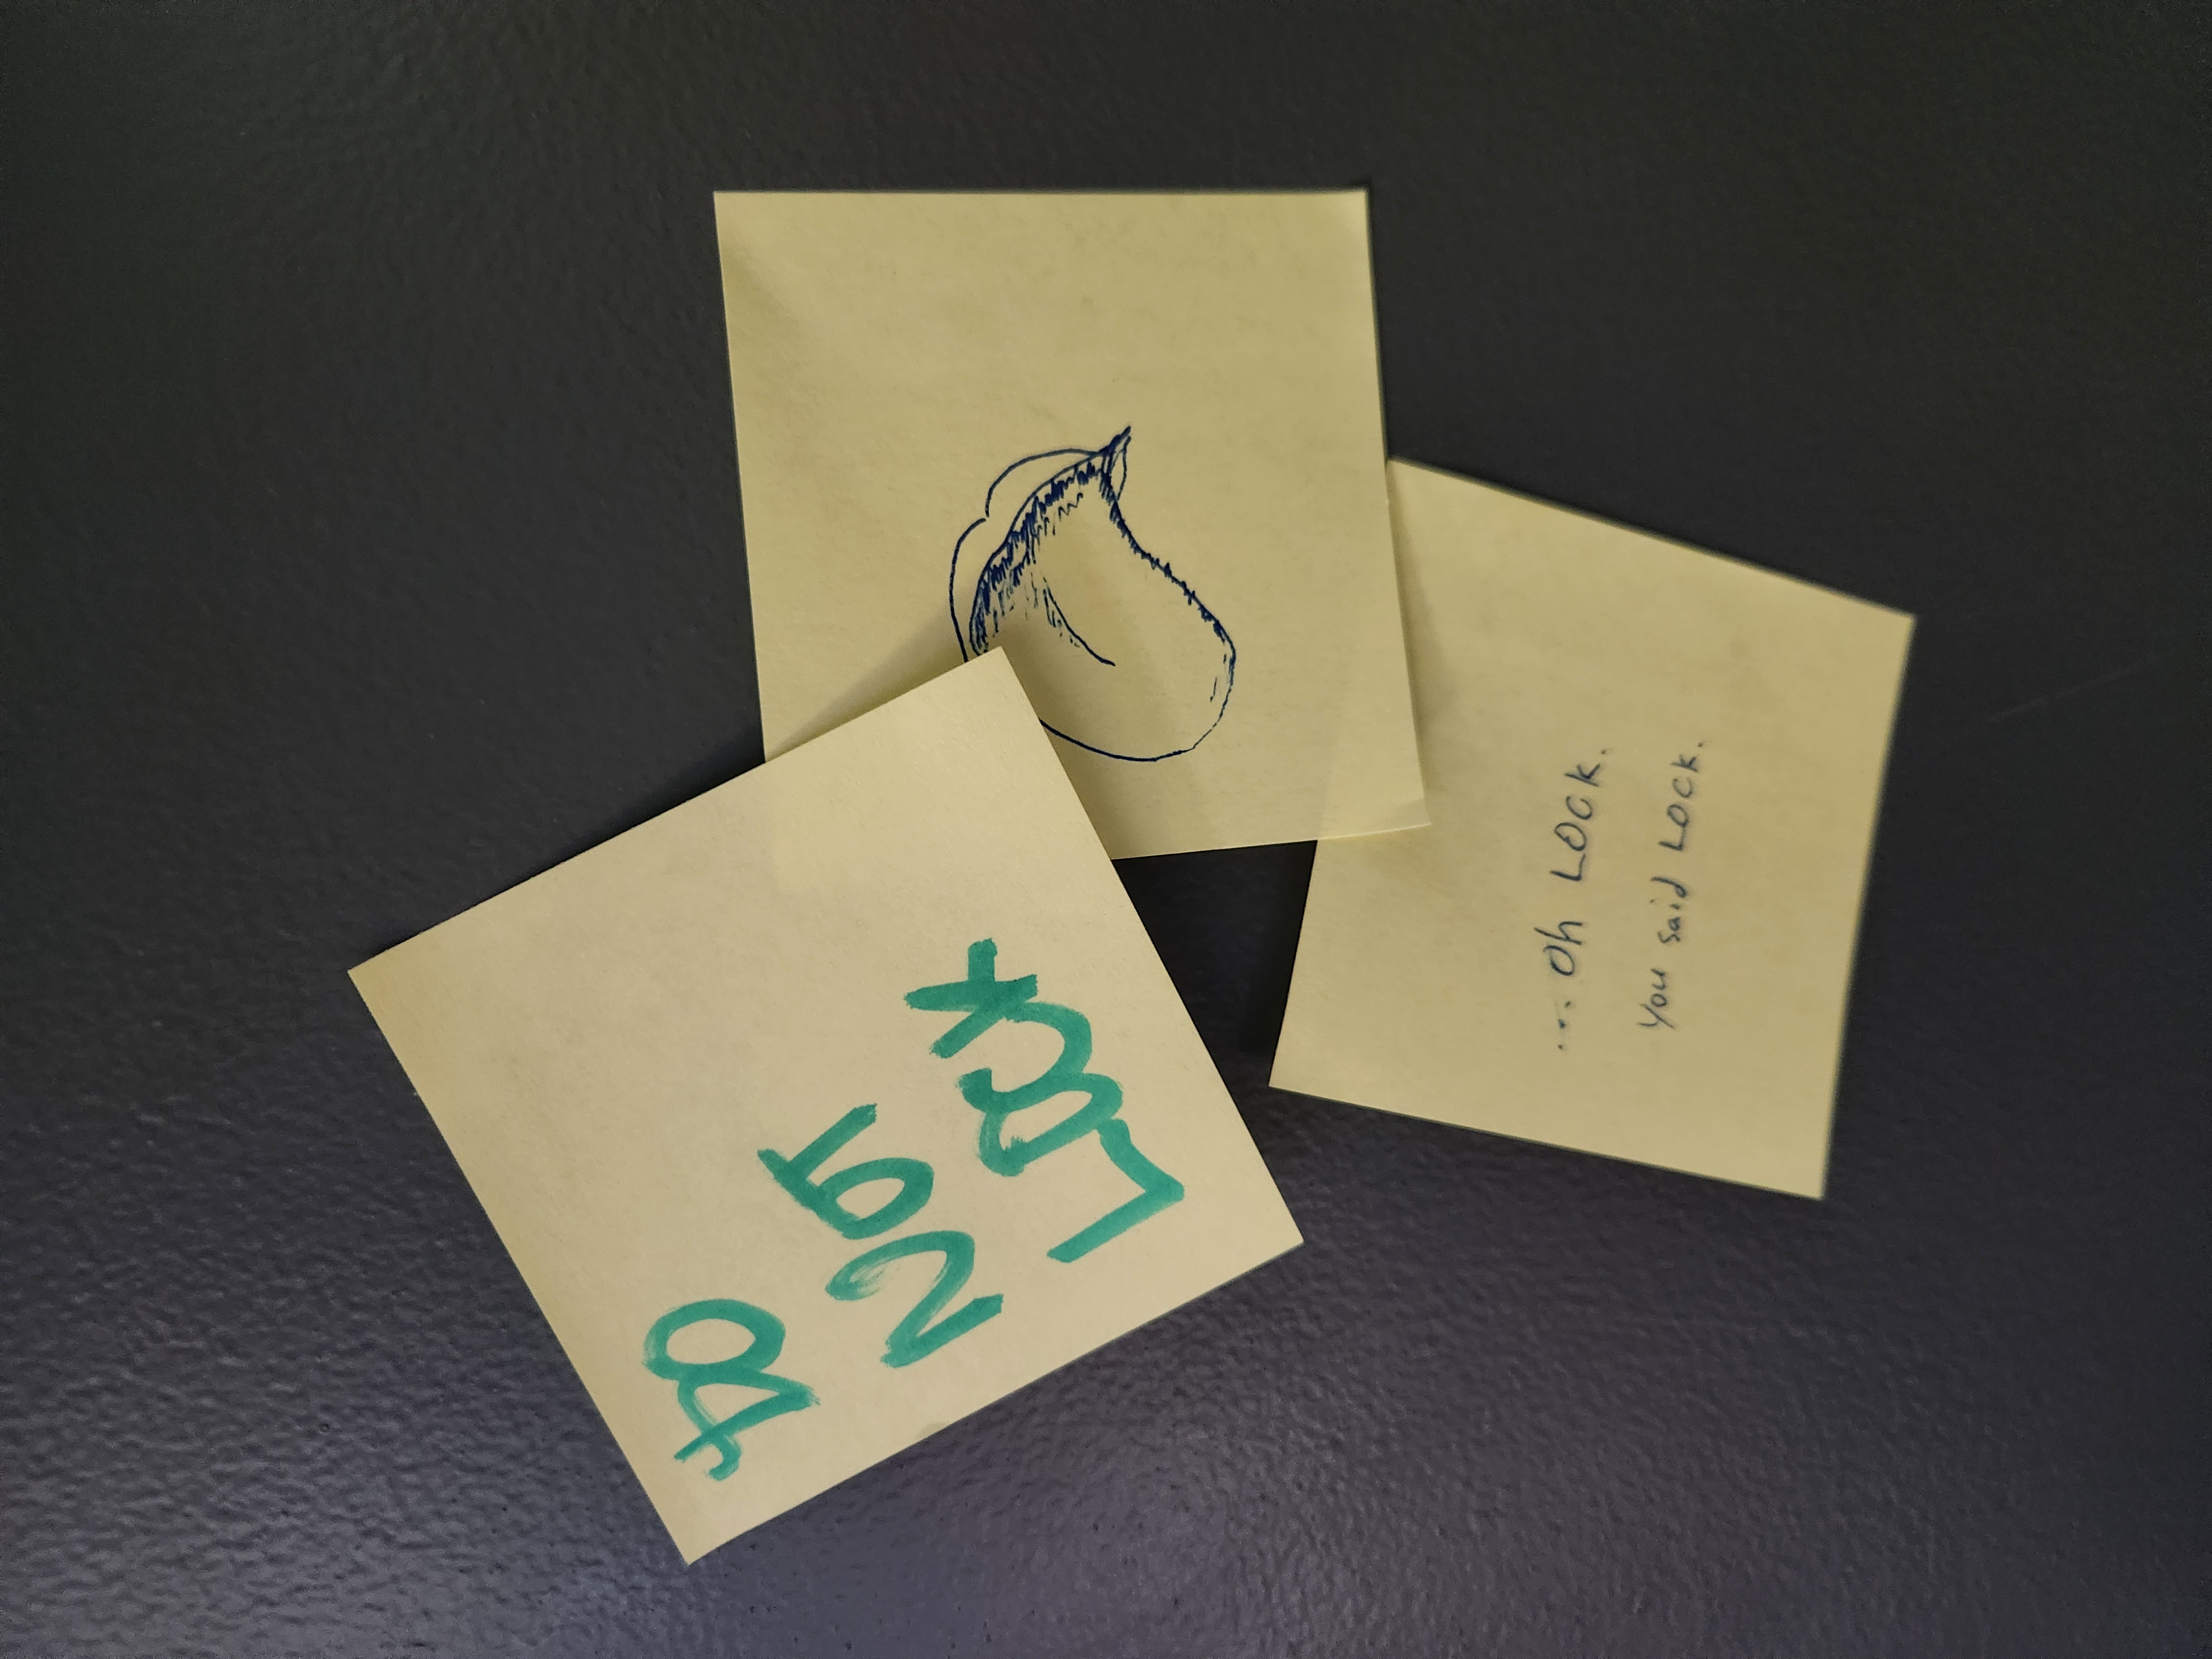 DO
NOT
LOCK
... Oh LOCK.
You said LOCK.